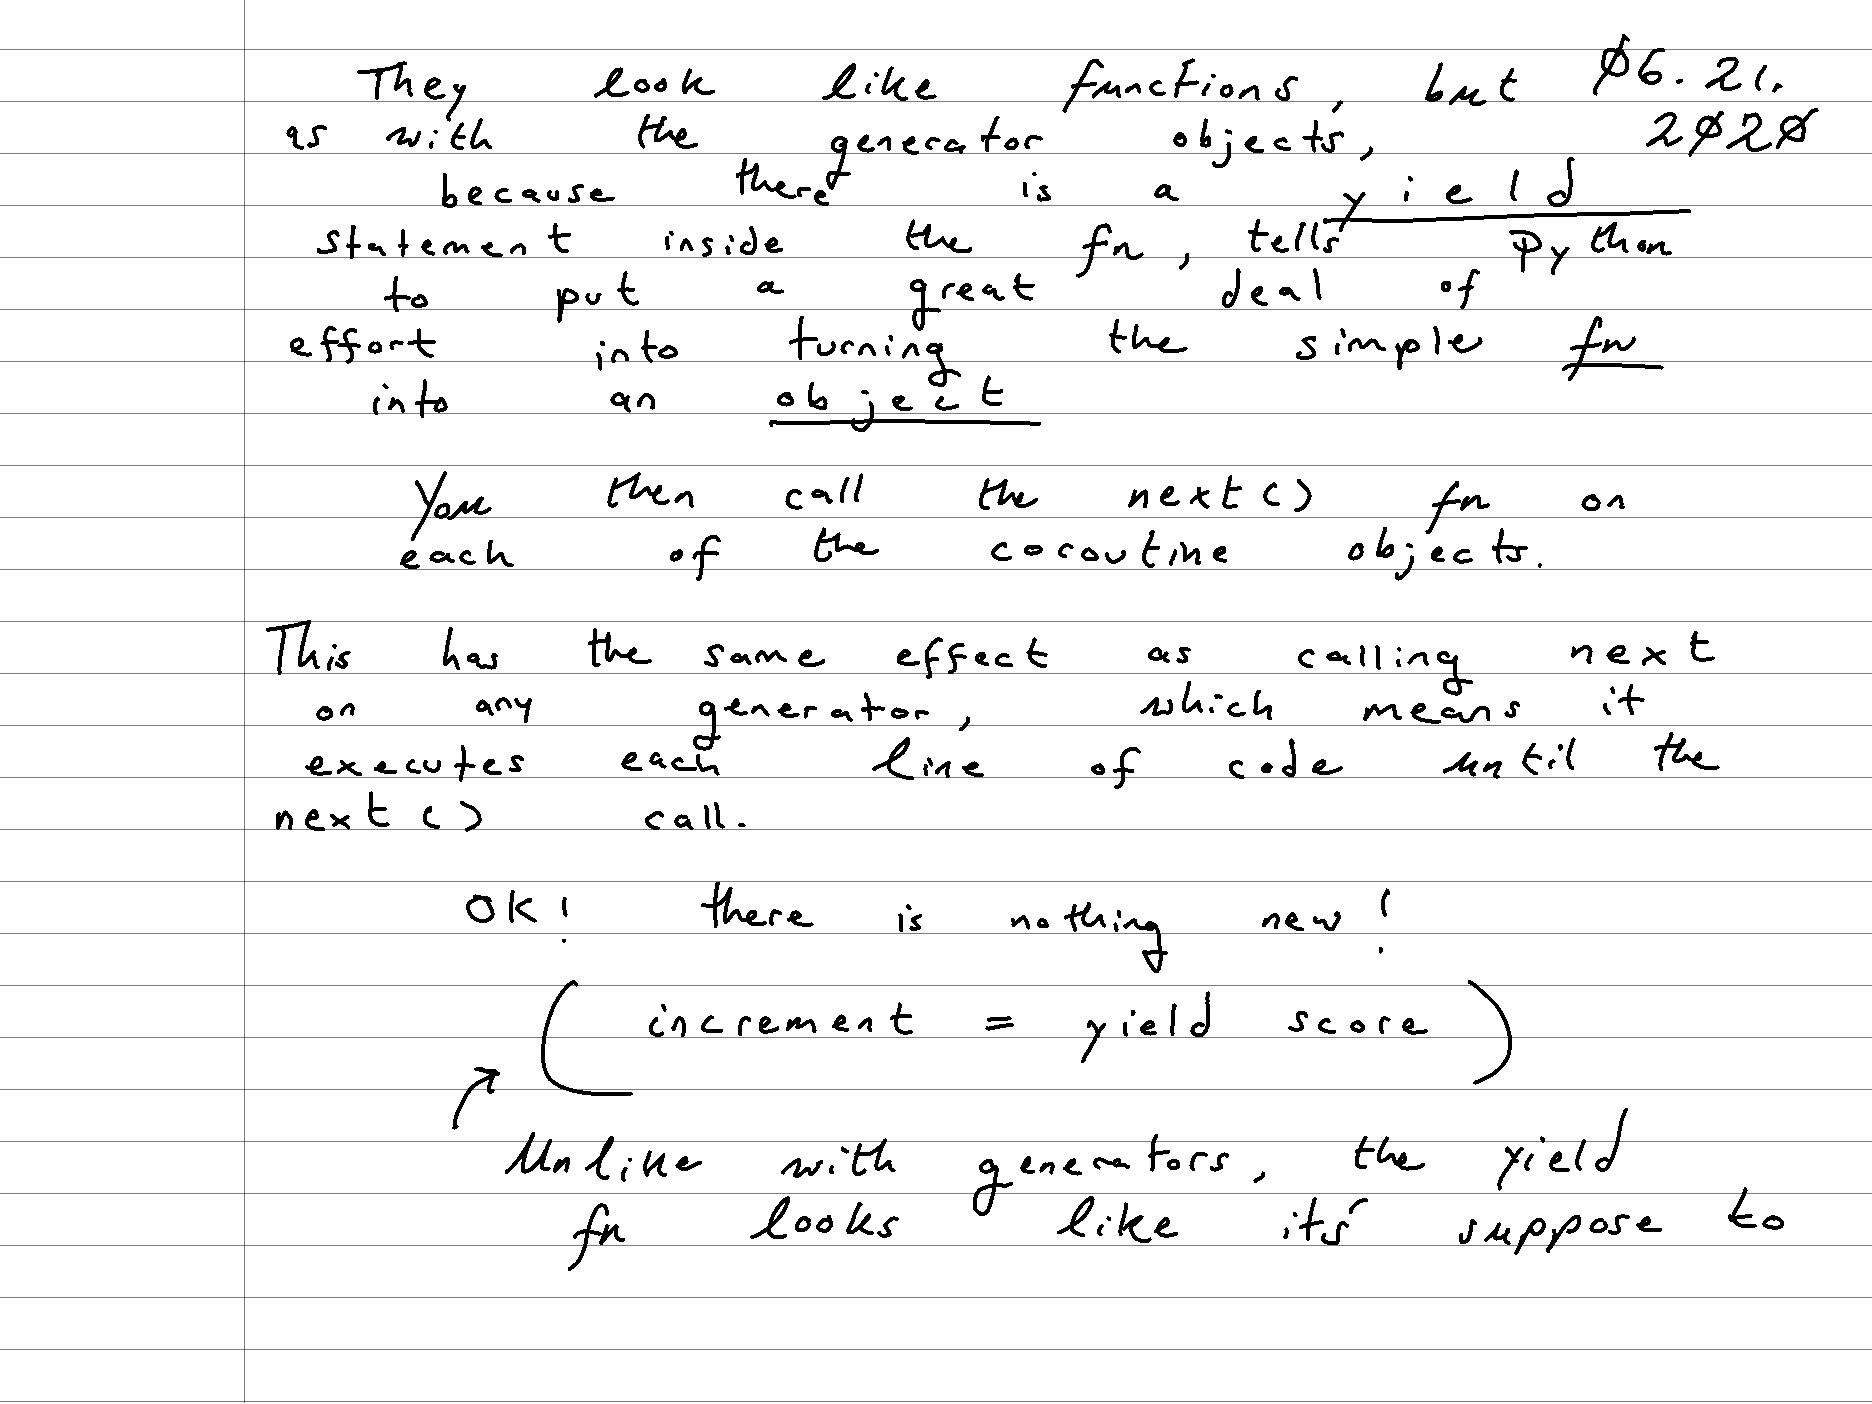 They look like functions, but Ø6.21.
as with the generator objects, 2Ø2Ø
because there is a yield
statement inside the fn, tells Python
to put a great deal of
effort into turning the simple fn
into an object
You then call the next() fn on
each of the coroutine objects.
This has the same effect as calling next
on any generator, which means it
executes each line of code until the
next() call.
OK! there is nothing new!
(increment = yield score)
Unlike with generators, the yield
fn looks like it's suppose to